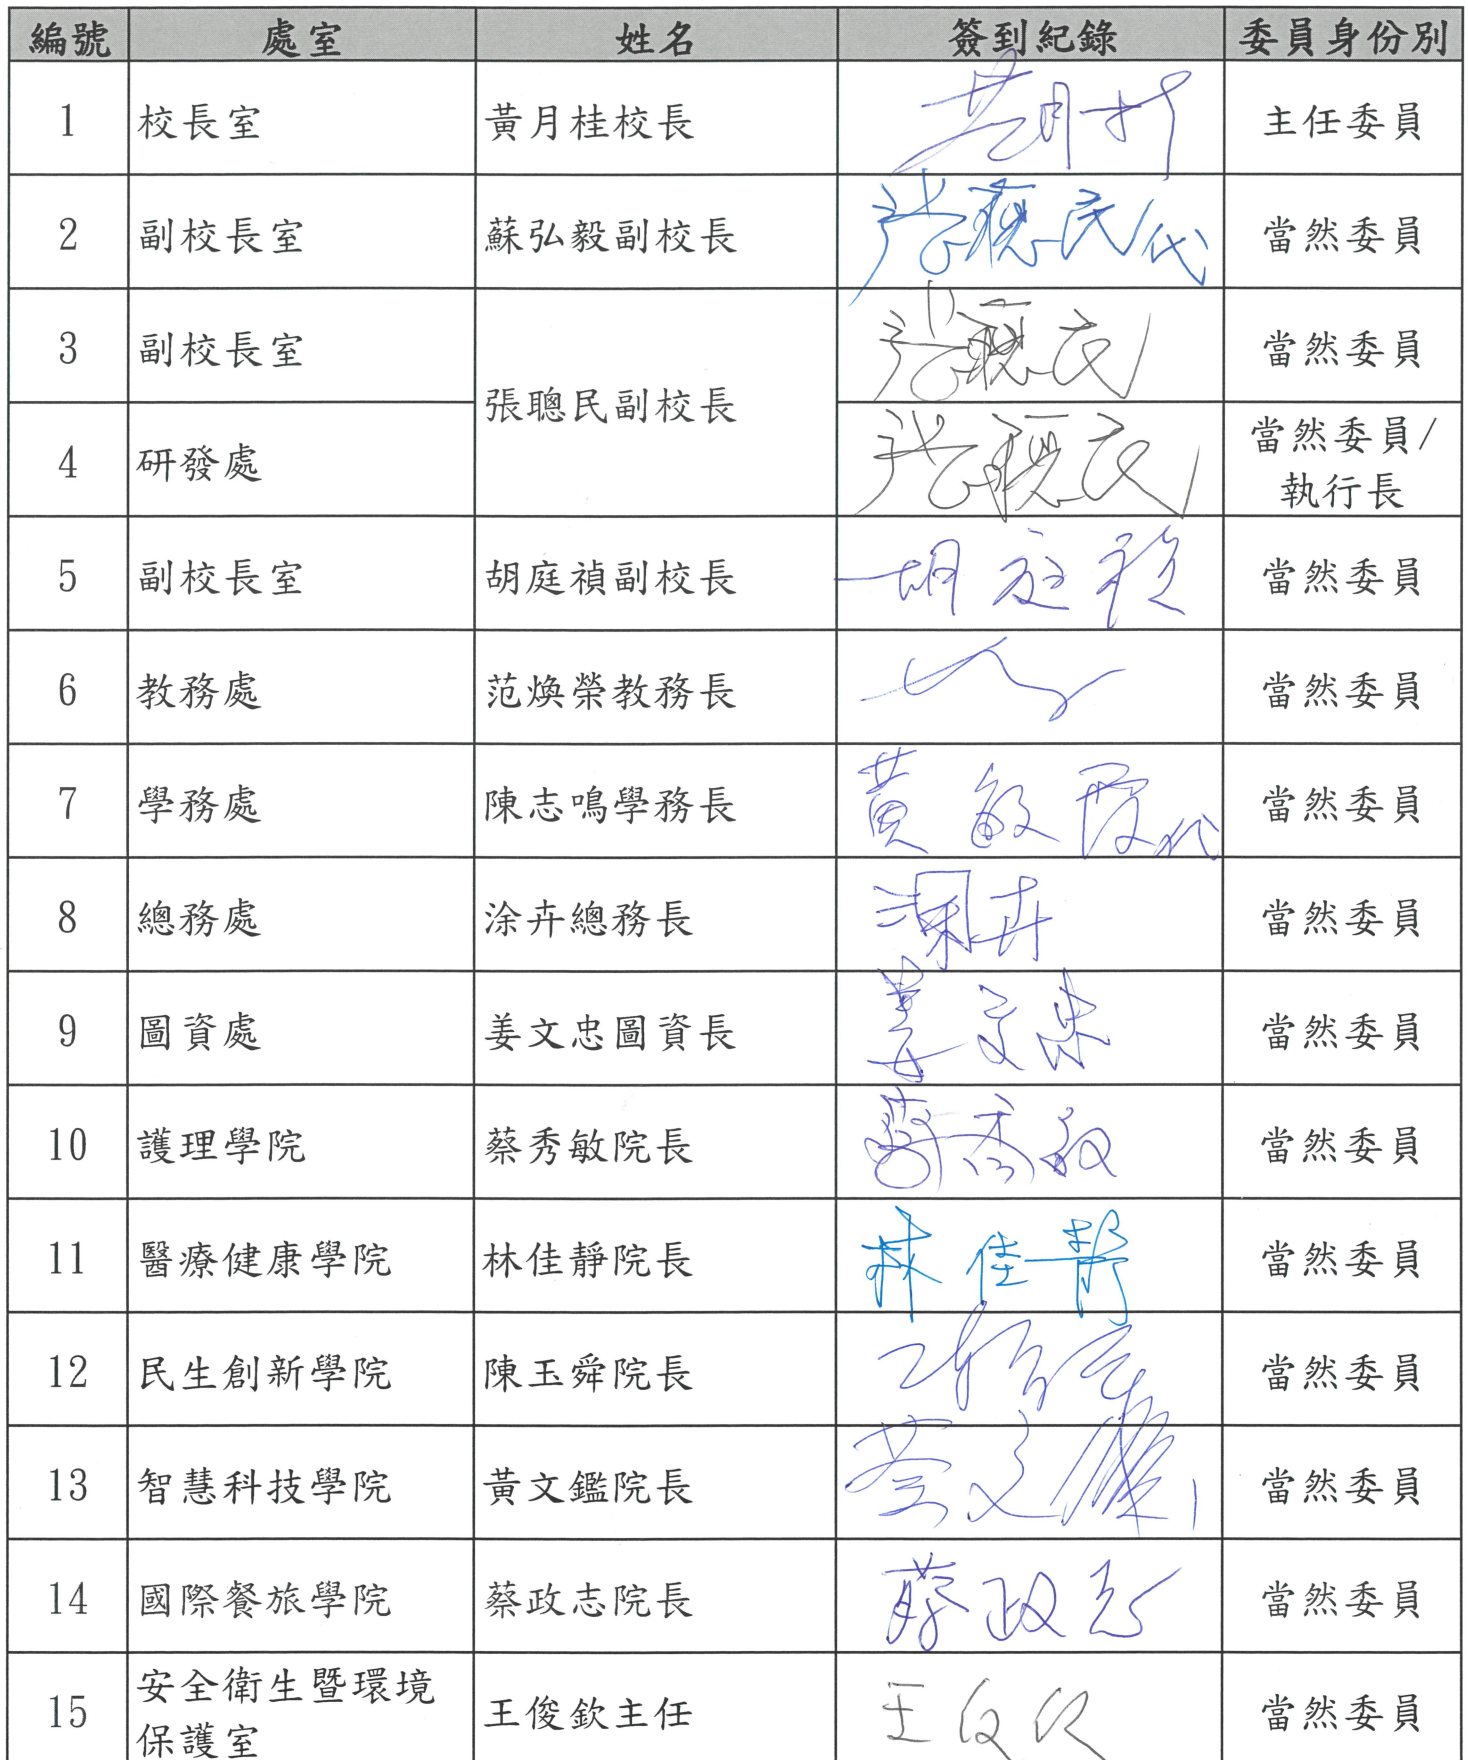 編號 處室 姓名 簽到紀錄 委員身份別
1 校長室 黃月桂校長 主任委員
2 副校長室 蘇弘毅副校長 張聰民代 當然委員
3 副校長室 張聰民副校長 張聰民 當然委員
4 研發處 張聰民 當然委員/
執行長
5 副校長室 胡庭禎副校長 胡庭禎 當然委員
6 教務處 范煥榮教務長 當然委員
7 學務處 陳志鳴學務長 黃敏霞代 當然委員
8 總務處 涂卉總務長 當然委員
9 圖資處 姜文忠圖資長 姜文忠 當然委員
10 護理學院 蔡秀敏院長 蔡秀敏 當然委員
11 醫療健康學院 林佳靜院長 林佳靜 當然委員
12 民生創新學院 陳玉舜院長 當然委員
13 智慧科技學院 黃文鑑院長 當然委員
14 國際餐旅學院 蔡政志院長 蔡政志 當然委員
15 安全衛生暨環境
保護室 王俊欽主任 王俊欽 當然委員